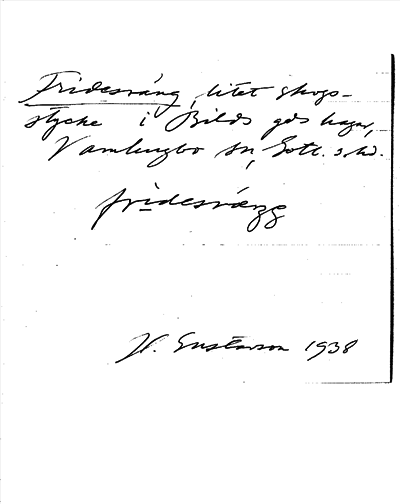 Fridesväng, litet skogs-
stycke i Bilds gds hagar,
Vamlingbo sn, Gotl. s. hd.
fridesvæŋg
H. Gustavson 1938